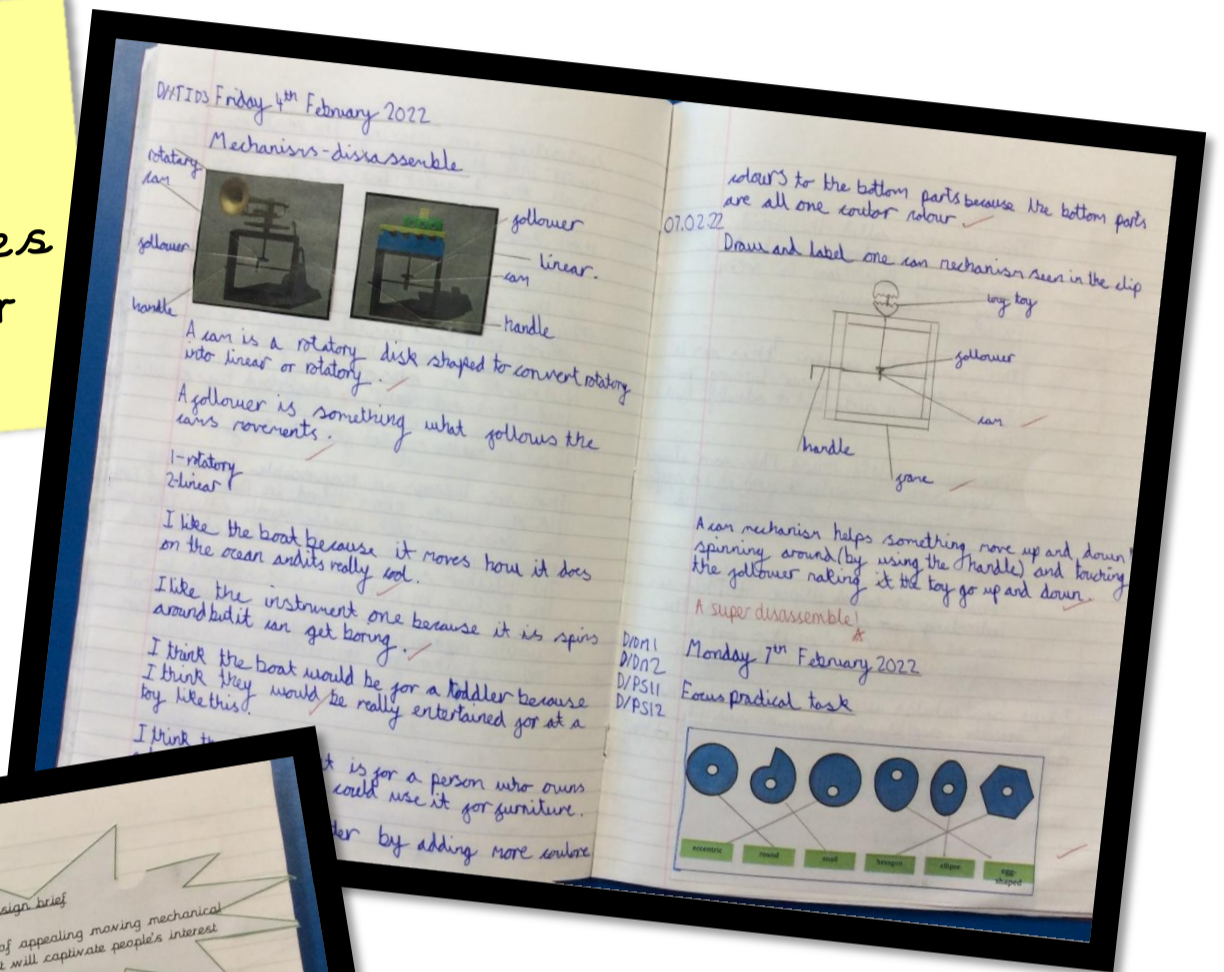 es
r
D/XTID3 Friday 4th February 2022
Mechanisms-dissassemble
rotatary
cam
follower
handle
follower
linear.
cam
handle
A cam is a rotatory disk shaped to convert rotatory
into linear or rotatory.
A follower is something what follows the
cams movements.
1-rotatory
2-linear
I like the boat because it moves how it does
on the ocean andits really cool.
I like the instrument one because it is spins
aroundbutit can get boring.
I think the boat would be for a toddler because
I think they would be really entertained for at a
toy like this.
I think
t is for a person who owns
could use it for furniture.
der by adding more coulore
colours to the bottom parts because the bottom parts
are all one coulor colour.
07.02.22
Draw and label one cam mechanism seen in the clip
toy
follower
cam
handle
frame
A cam mechanism helps something move up and down
spinning around (by using the handle) and touching
the follower making it the toy go up and down.
A super disassemble!
D/DM1
D/DM2
D/PS11
D/PS12
Monday 7th February 2022
Focus practical task
eccentric
round
snail
hexagon
ellipse
egg-
shaped
sign brief
of appealing moving mechanical
t will captivate people's interest